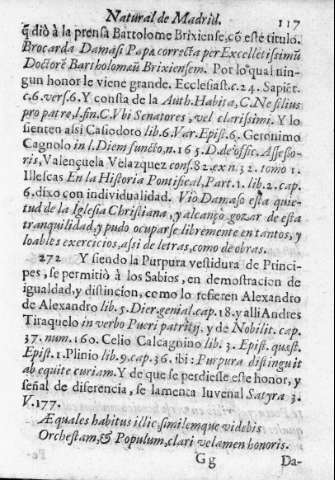 Natural de Madrid. 117
q̃ dió à la prensa Bartolome Brixiense, cō este titulo.
Brocarda Damasi Papæ correcta per Excellētissimũ
Doctorē Bartholomæũ Brixiensem. Por lo qual nin-
gun honor le viene grande. Ecclesiast. c. 24. Sapiēt.
c. 6. vers. 6. Y consta de la Auth. Habita, C. Ne filius
pro patre, l. fin. C. Vbi Senatores, vel clarissimi. Y lo
sienten assi Casiodoro lib. 6. Var. Epist. 6. Geronimo
Cagnolo in l. Diem functo, n. 165. D. de offic. Assesso-
ris, Valençuela Velazquez cons. 82. ex n. 32. tomo 1.
Illescas En la Historia Pontifical, Part. 1. lib. 2. cap.
6. dixo con individualidad. Viò Damaso esta quie-
tud de la Iglesia Christiana, y alcançò gozar de esta
tranquilidad, y pudo ocuparse libremente en tantos, y
loables exercicios, assi de letras, como de obras.
272 Y siendo la Purpura vestidura de Princi-
pes, se permitiò à los Sabios, en demostracion de
igualdad, y distincion, como lo refieren Alexandro
de Alexandro lib. 5. Dier. genial. cap. 18. y alli Andres
Tiraquelo in verbo Pueri patritij, y de Nobilit. cap.
37. num. 160. Celio Calcagnino lib. 3. Epist. quæst.
Epist. 1. Plinio lib. 9. cap. 36. ibi: Purpura distinguit
ab equite curiam. Y de que se perdiesse este honor, y
señal de diferencia, se lamenta Iuvenal Satyra 3.
V. 177.
Æquales habitus illic, similemque videbis
Orchestam, & Populum, clari velamen honoris.
Gg Da-